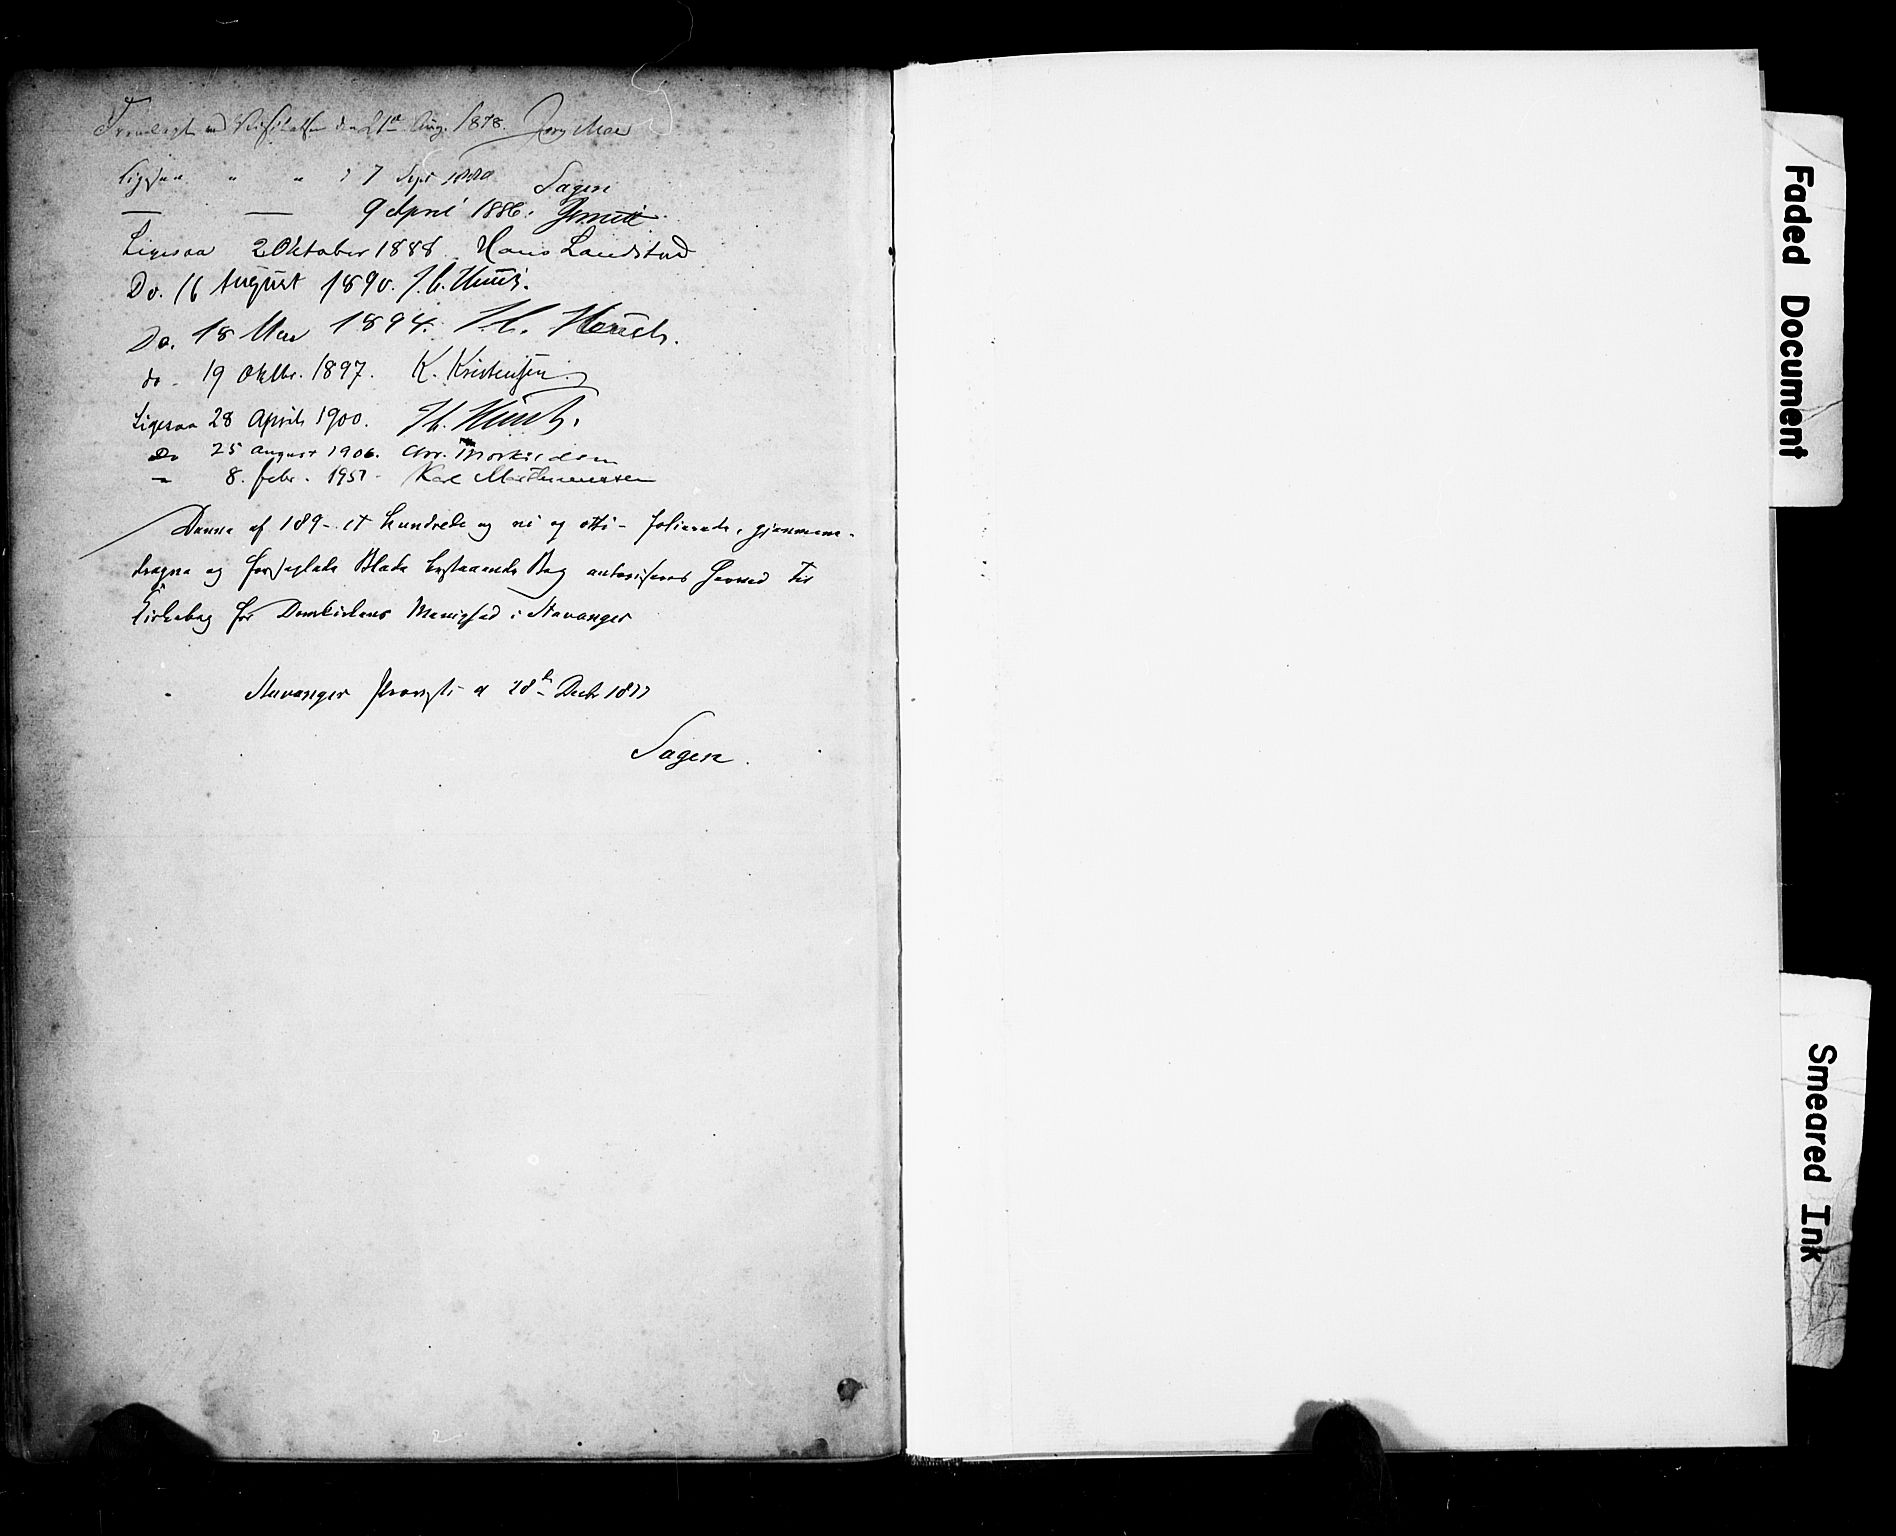 Fremlagt ved Visitatsen den 21de Aug. 1878. Jørg Moe
Ligesaa " " 7 Sept 1880 Sagen
— — 9 April 1886.
Ligesaa 2 Oktober 1888 Hans Landstad
Do. 16 August 1890. J. C. Heuch.
Do. 18 Mai 1894. J. C. Heuch.
do - 19 Oktbr. 1897. K. Kristensen.
Ligesaa 28 April 1900. J. C. Heuch.
Do 25 august 1906.
" 8. febr. 1951. Karl Marthinussen
Denne af 189 - et hundrede og ni og otti - folierede, gjennem-
dragne og forseglede Blade bestaaende Bog autoriseres herved til
Kirkebog for Domkirkens Menighed i Stavanger
Stavanger Provsti d 28de Decbr 1877
Sagen.
Faded Document
Smeared Ink